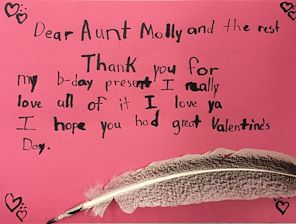 Dear Aunt Molly and the rest
Thank you for
my b-day present I really
love all of it I love ya
I hope you had great Valentine's
Day.